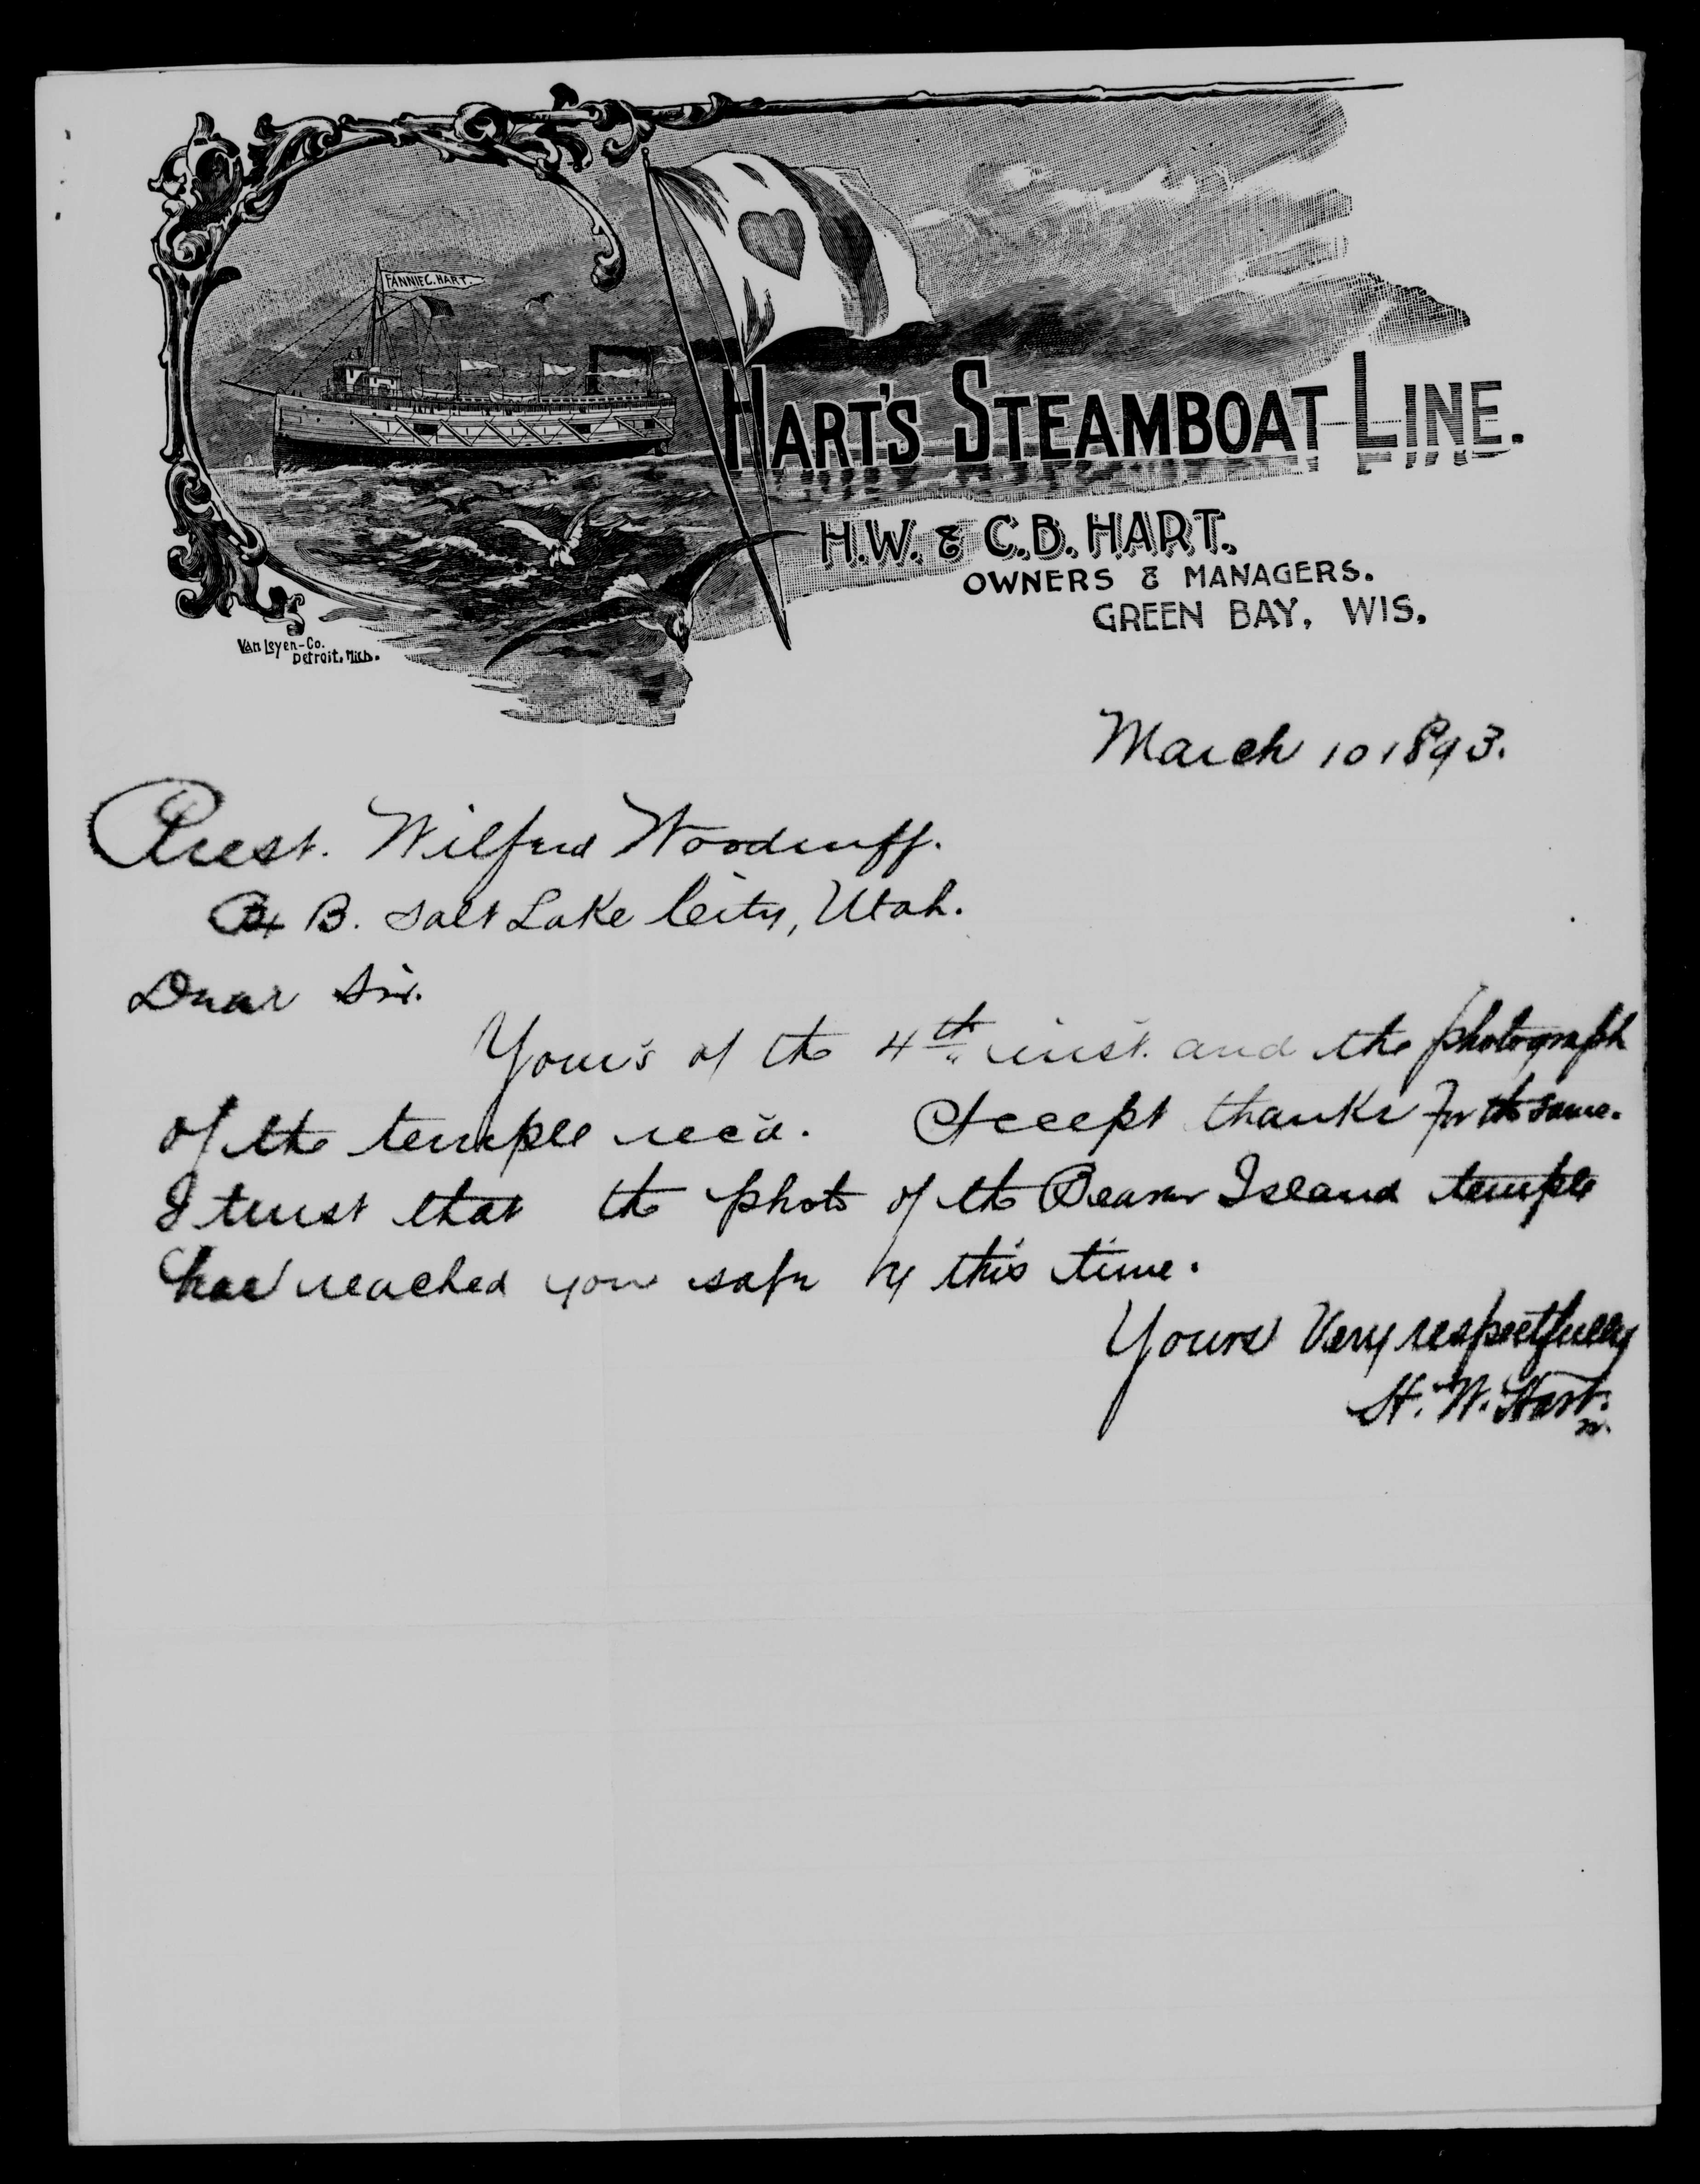 FANNIE C. HART.
HART'S STEAMBOAT LINE.
H.W. & C.B. HART.
OWNERS & MANAGERS.
GREEN BAY, WIS.
Van Leyen-Co.
Detroit, Mich.
March 10 1893.
Prest. Wilford Woodruff.
B. Salt Lake City, Utah.
Dear Sir.
Your's of the 4th inst. and the photograph
of the temple rec'd. Accept thanks for the same.
I trust that the photo of the Beaver Island temple
has reached you safe by this time.
Yours Very respectfully
H. W. Hart.